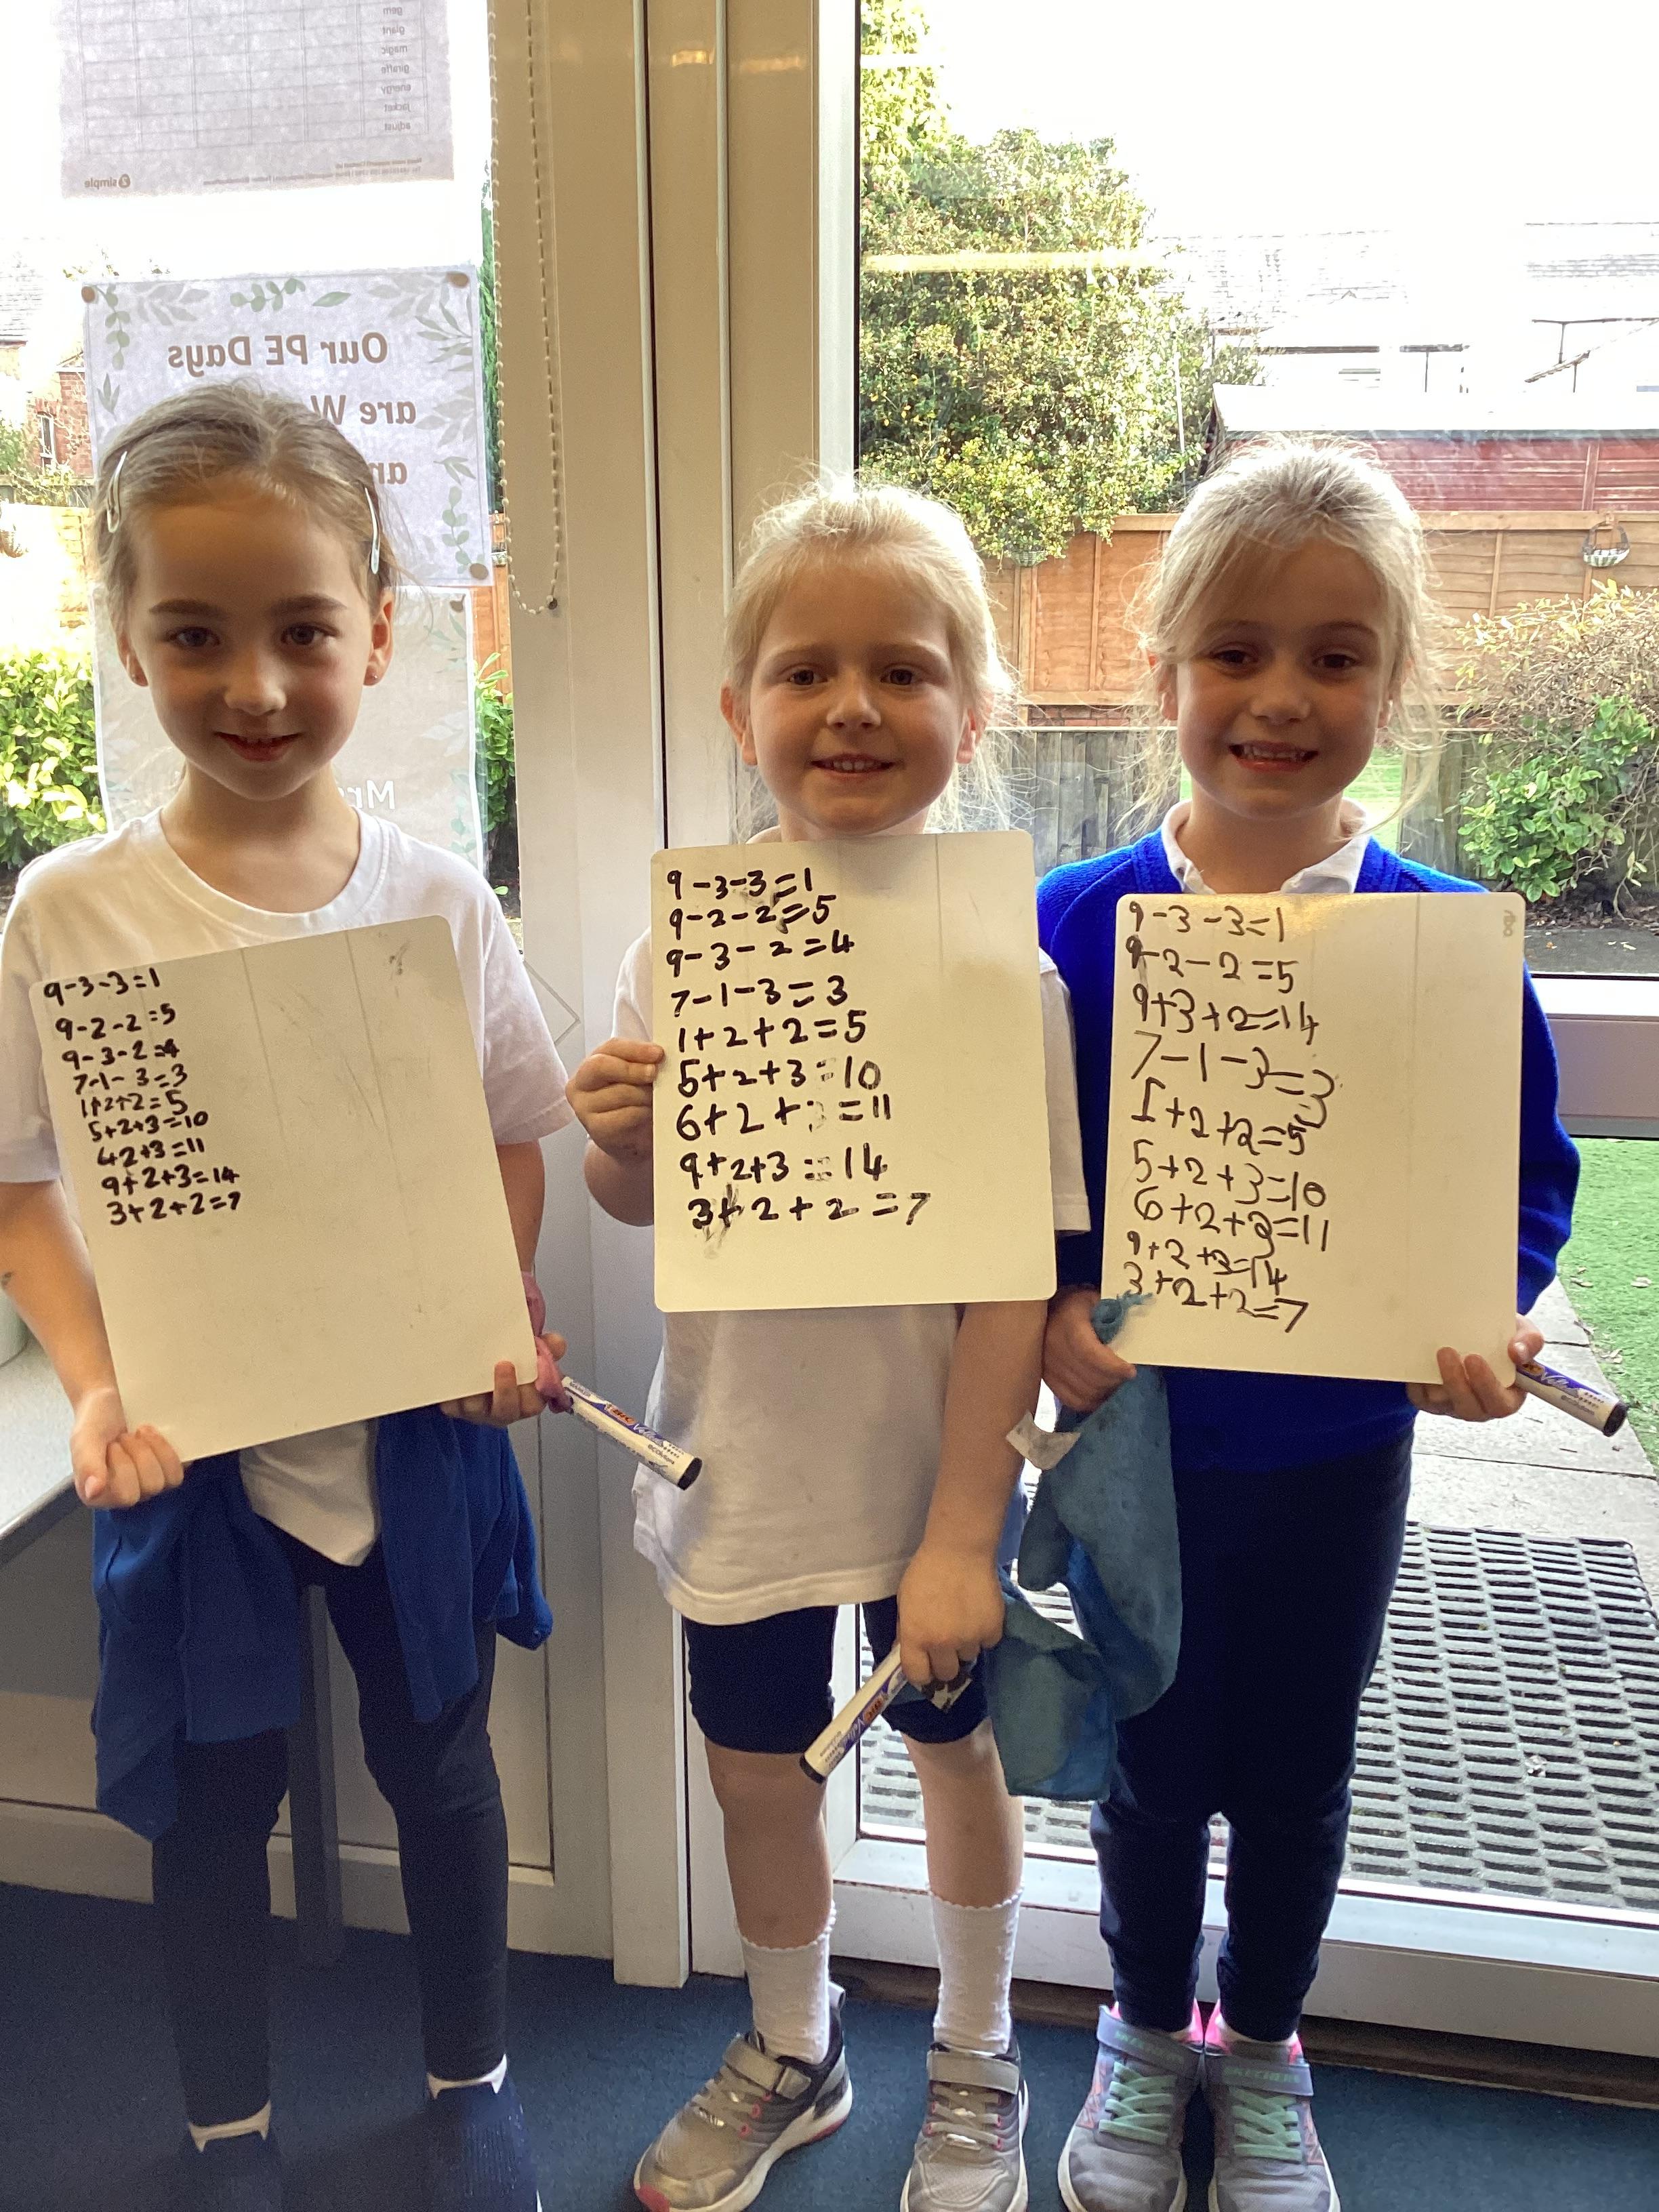 gem
giant
magic
giraffe
energy
jacket
adjust
2simple
Our PE Days
are W
an
Mr
9-3-3=1
9-2-2=5
9-3-2=4
7-1-3=3
1+2+2=5
5+2+3=10
42+3=11
9+2+3=14
3+2+2=7
9-3-3=1
9-2-2=5
9-3-2=4
7-1-3=3
1+2+2=5
5+2+3=10
6+2+3=11
9+2+3=14
3+2+2=7
9-3-3=1
9-2-2=5
9+3+2=14
7-1-3=3
1+2+2=5
5+2+3=10
6+2+3=11
9+2+3=14
3+2+2=7
BIC Velle
BIC Velle
BIC
SKECHERS